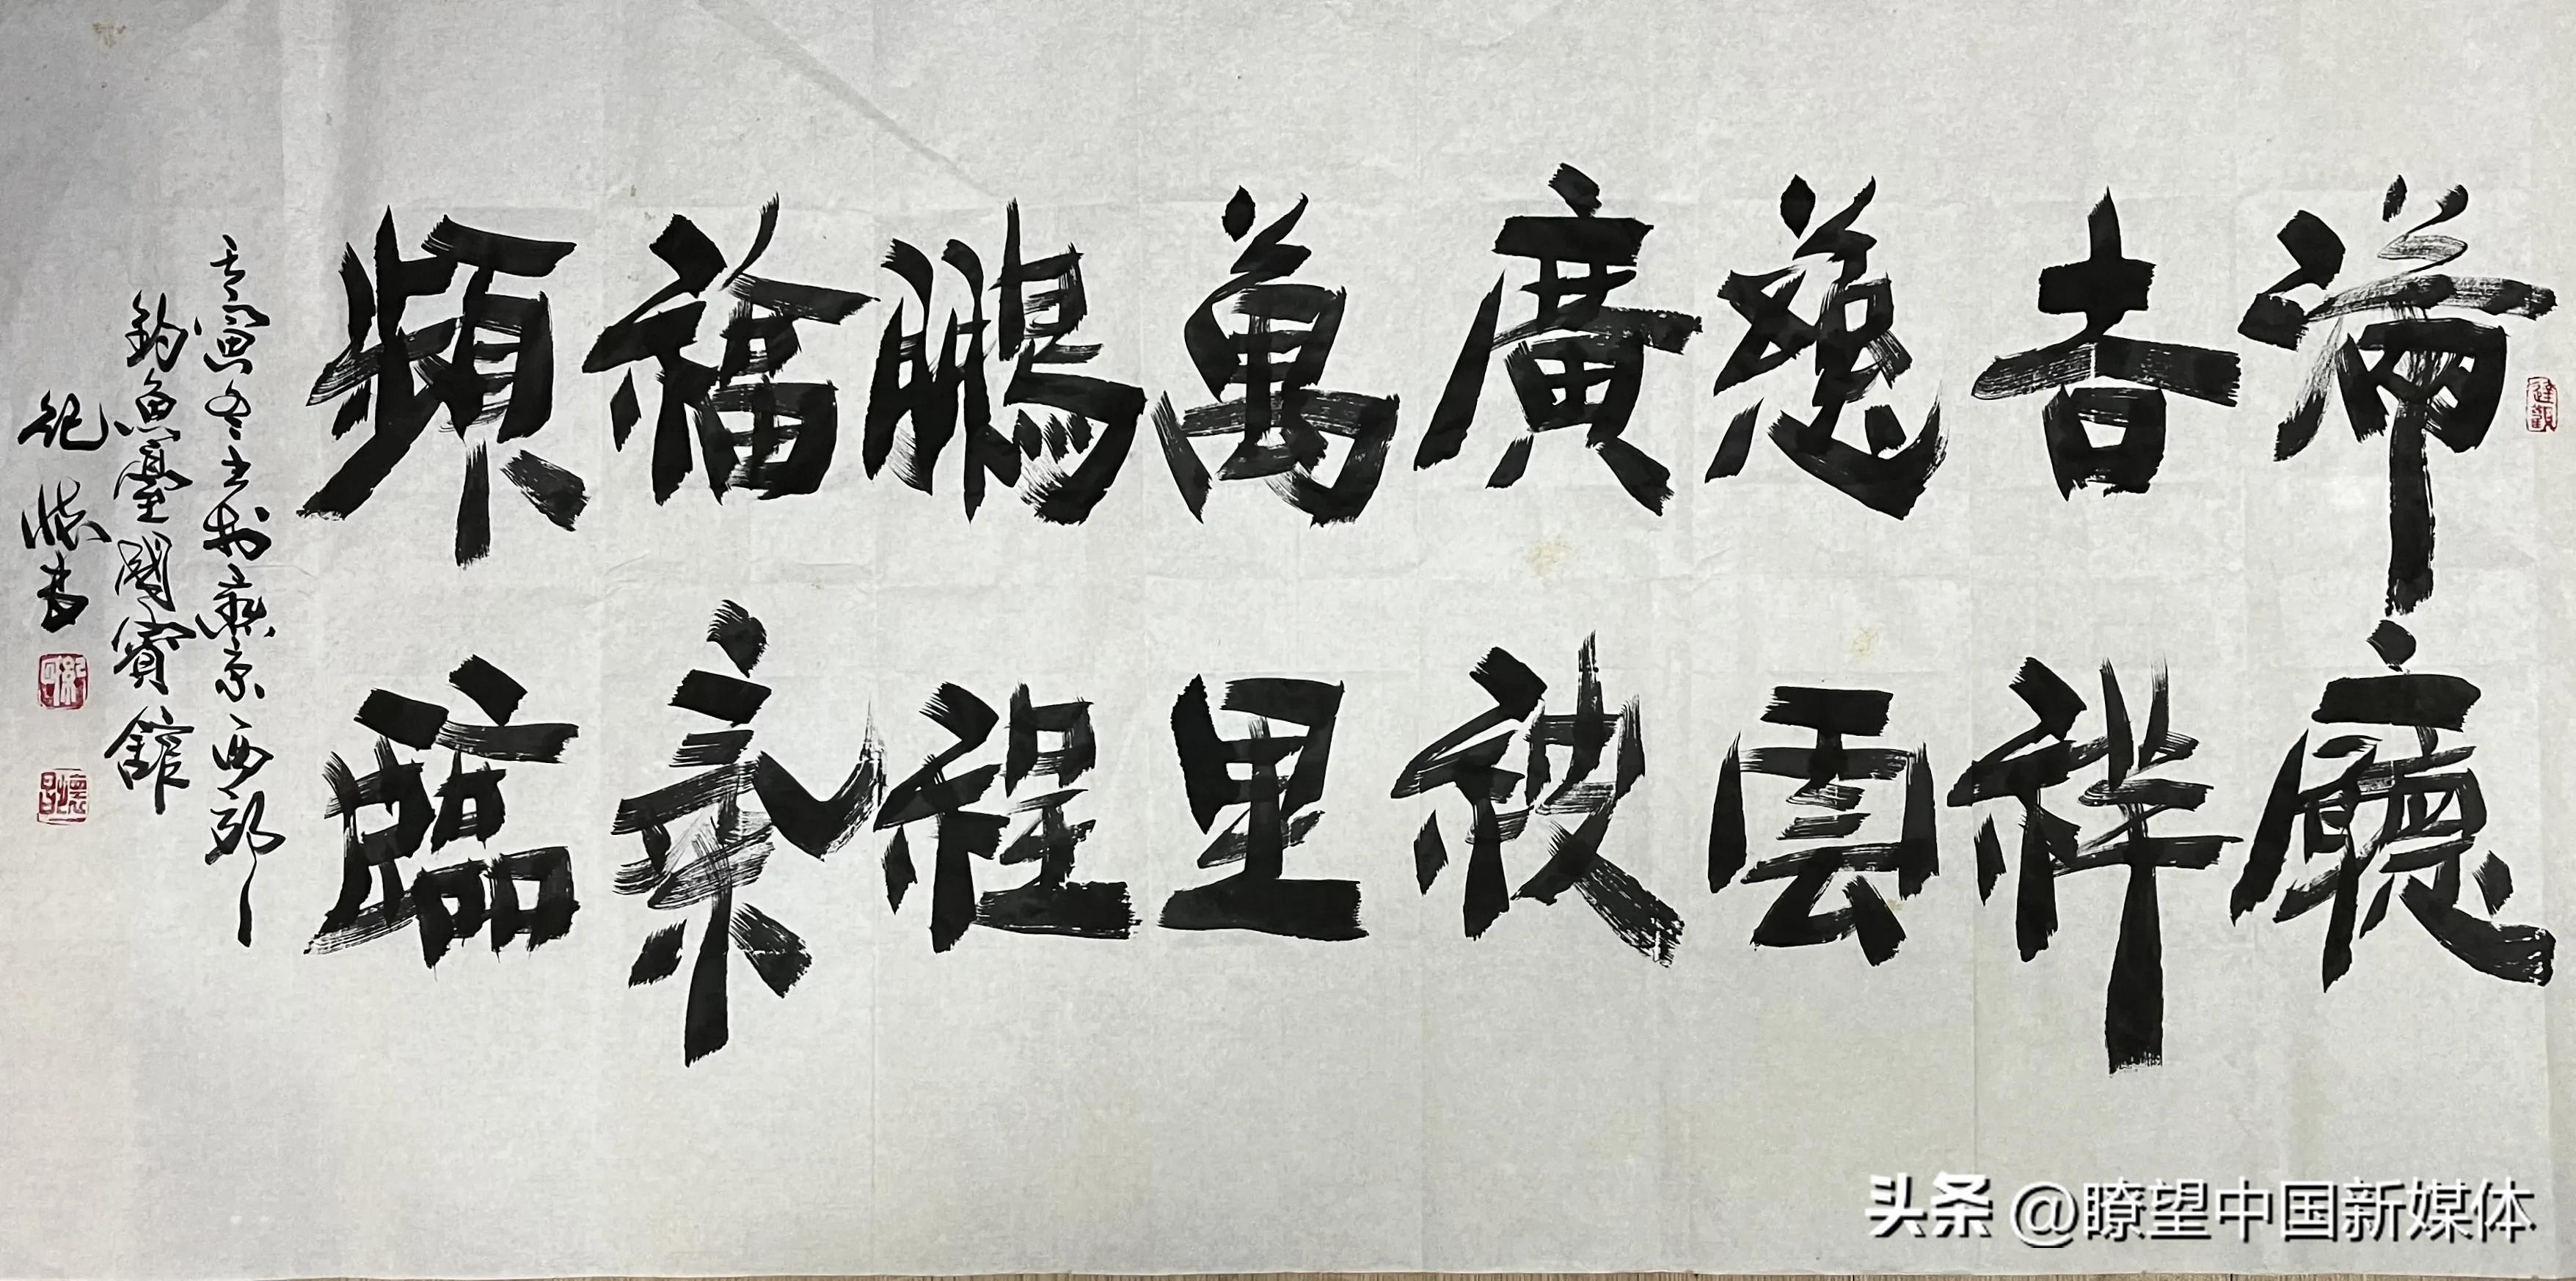 滿廳
吉祥
慈雲
廣被
萬里
鵬程
福
頻臨
壬寅冬於燕京西郊
釣魚臺國賓館
紀懷
头条 @瞭望中国新媒体